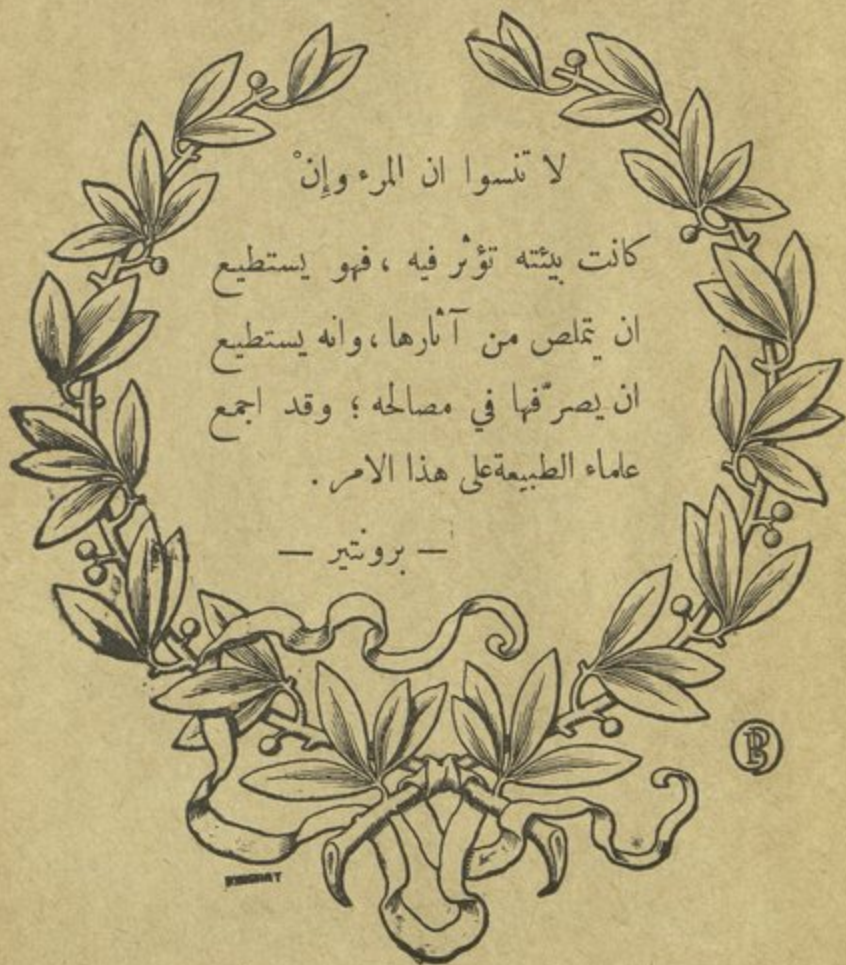 لا تنسوا ان المرء وإِنْ
كانت بيئته تؤثر فيه ، فهو يستطيع
ان يتملص من آثارها ، وانه يستطيع
ان يصرّفها في مصالحه ؛ وقد اجمع
علماء الطبيعة على هذا الامر .
— برونتير —